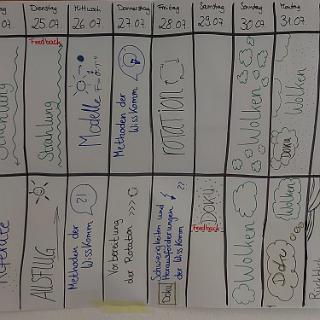 Dienstag Mittwoch Donnerstag Freitag Samstag Sonntag Montag
25.07 26.07 27.07 28.07 29.07 30.07 31.07
Feedback
Strahlung
Modelle
Methoden der
WissKomm
rotation
Wolken
Wolken
Doku
AUSFLUG
Methoden der
WissKomm
?!
Vorbereitung
der Rotation >>>
Schwierigkeiten und
Herausforderungen
der WissKomm
??
Doku
DOKU
Feedback
Wolken
Wolken
Doku